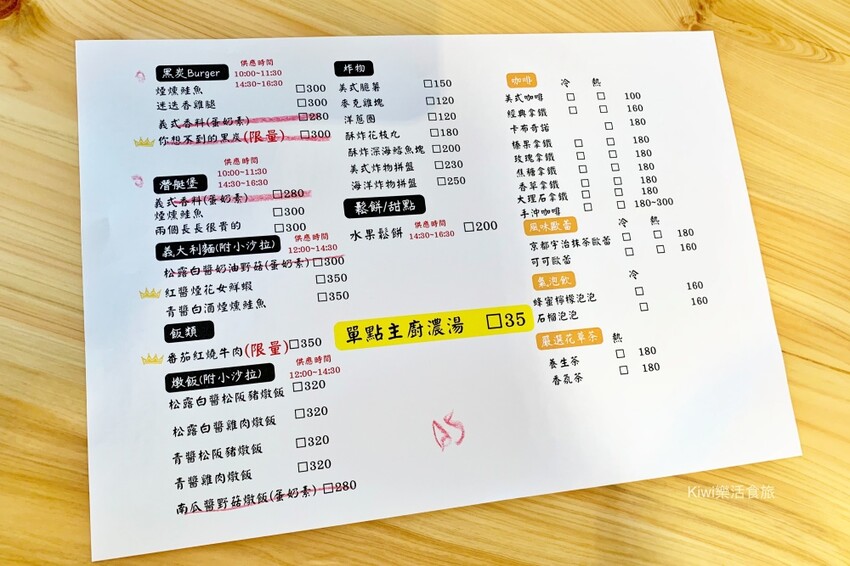 黑炭Burger
供應時間
10:00~11:30
14:30~16:30
煙燻鮭魚 □300
迷迭香雞腿 □300
義式香料(蛋奶素) □280
你想不到的黑炭(限量) □300
潛艇堡
供應時間
10:00~11:30
14:30~16:30
義式香料(蛋奶素) □280
煙燻鮭魚 □300
兩個長長很貴的 □300
義大利麵(附小沙拉)
供應時間
12:00~14:30
松露白醬奶油野菇(蛋奶素) □300
紅醬煙花女鮮蝦 □350
青醬白酒煙燻鮭魚 □350
飯類
番茄紅燒牛肉(限量) □350
燉飯(附小沙拉)
供應時間
12:00~14:30
松露白醬松阪豬燉飯 □320
松露白醬雞肉燉飯 □320
青醬松阪豬燉飯 □320
青醬雞肉燉飯 □320
南瓜醬野菇燉飯(蛋奶素) □280
炸物
美式脆薯 □150
麥克雞塊 □120
洋蔥圈 □120
酥炸花枝丸 □180
酥炸深海鱈魚塊 □200
美式炸物拼盤 □230
海洋炸物拼盤 □250
鬆餅/甜點
水果鬆餅
供應時間
14:30~16:30
□200
單點主廚濃湯 □35
A5
咖啡 冷 熱
美式咖啡 □ □ 100
經典拿鐵 □ □ 160
卡布奇諾 □ 180
榛果拿鐵 □ □ 180
玫瑰拿鐵 □ □ 180
焦糖拿鐵 □ □ 180
香草拿鐵 □ □ 180
大理石拿鐵 □ □ 180
手沖咖啡 □ □ 180~300
風味歐蕾 冷 熱
京都宇治抹茶歐蕾 □ □ 180
可可歐蕾 □ □ 160
氣泡飲 冷
蜂蜜檸檬泡泡 □ 160
石榴泡泡 □ 160
嚴選花草茶 熱
養生茶 □ 180
香氛茶 □ 180
Kiwi樂活食旅